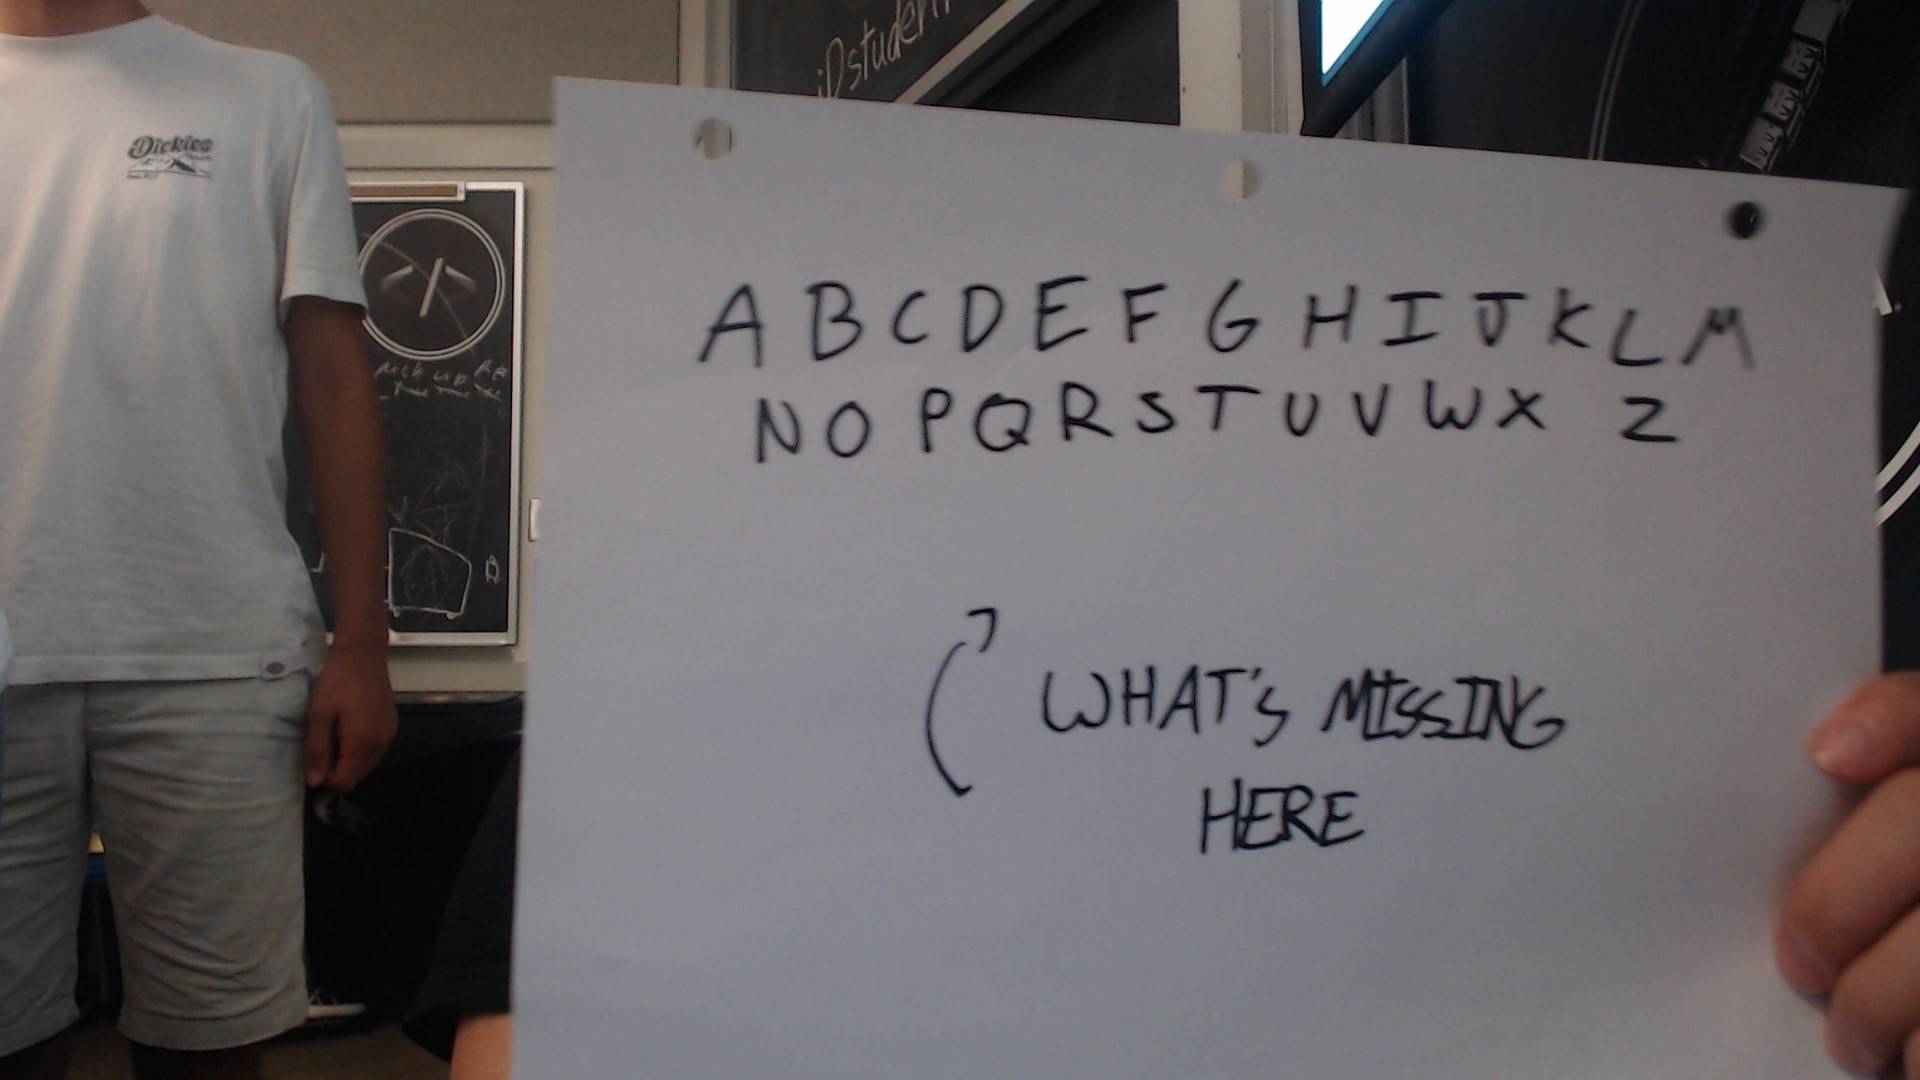 iDstuden
Dickies
A B C D E F G H I J K L M
N O P Q R S T U V W X Z
WHAT'S MISSING
HERE